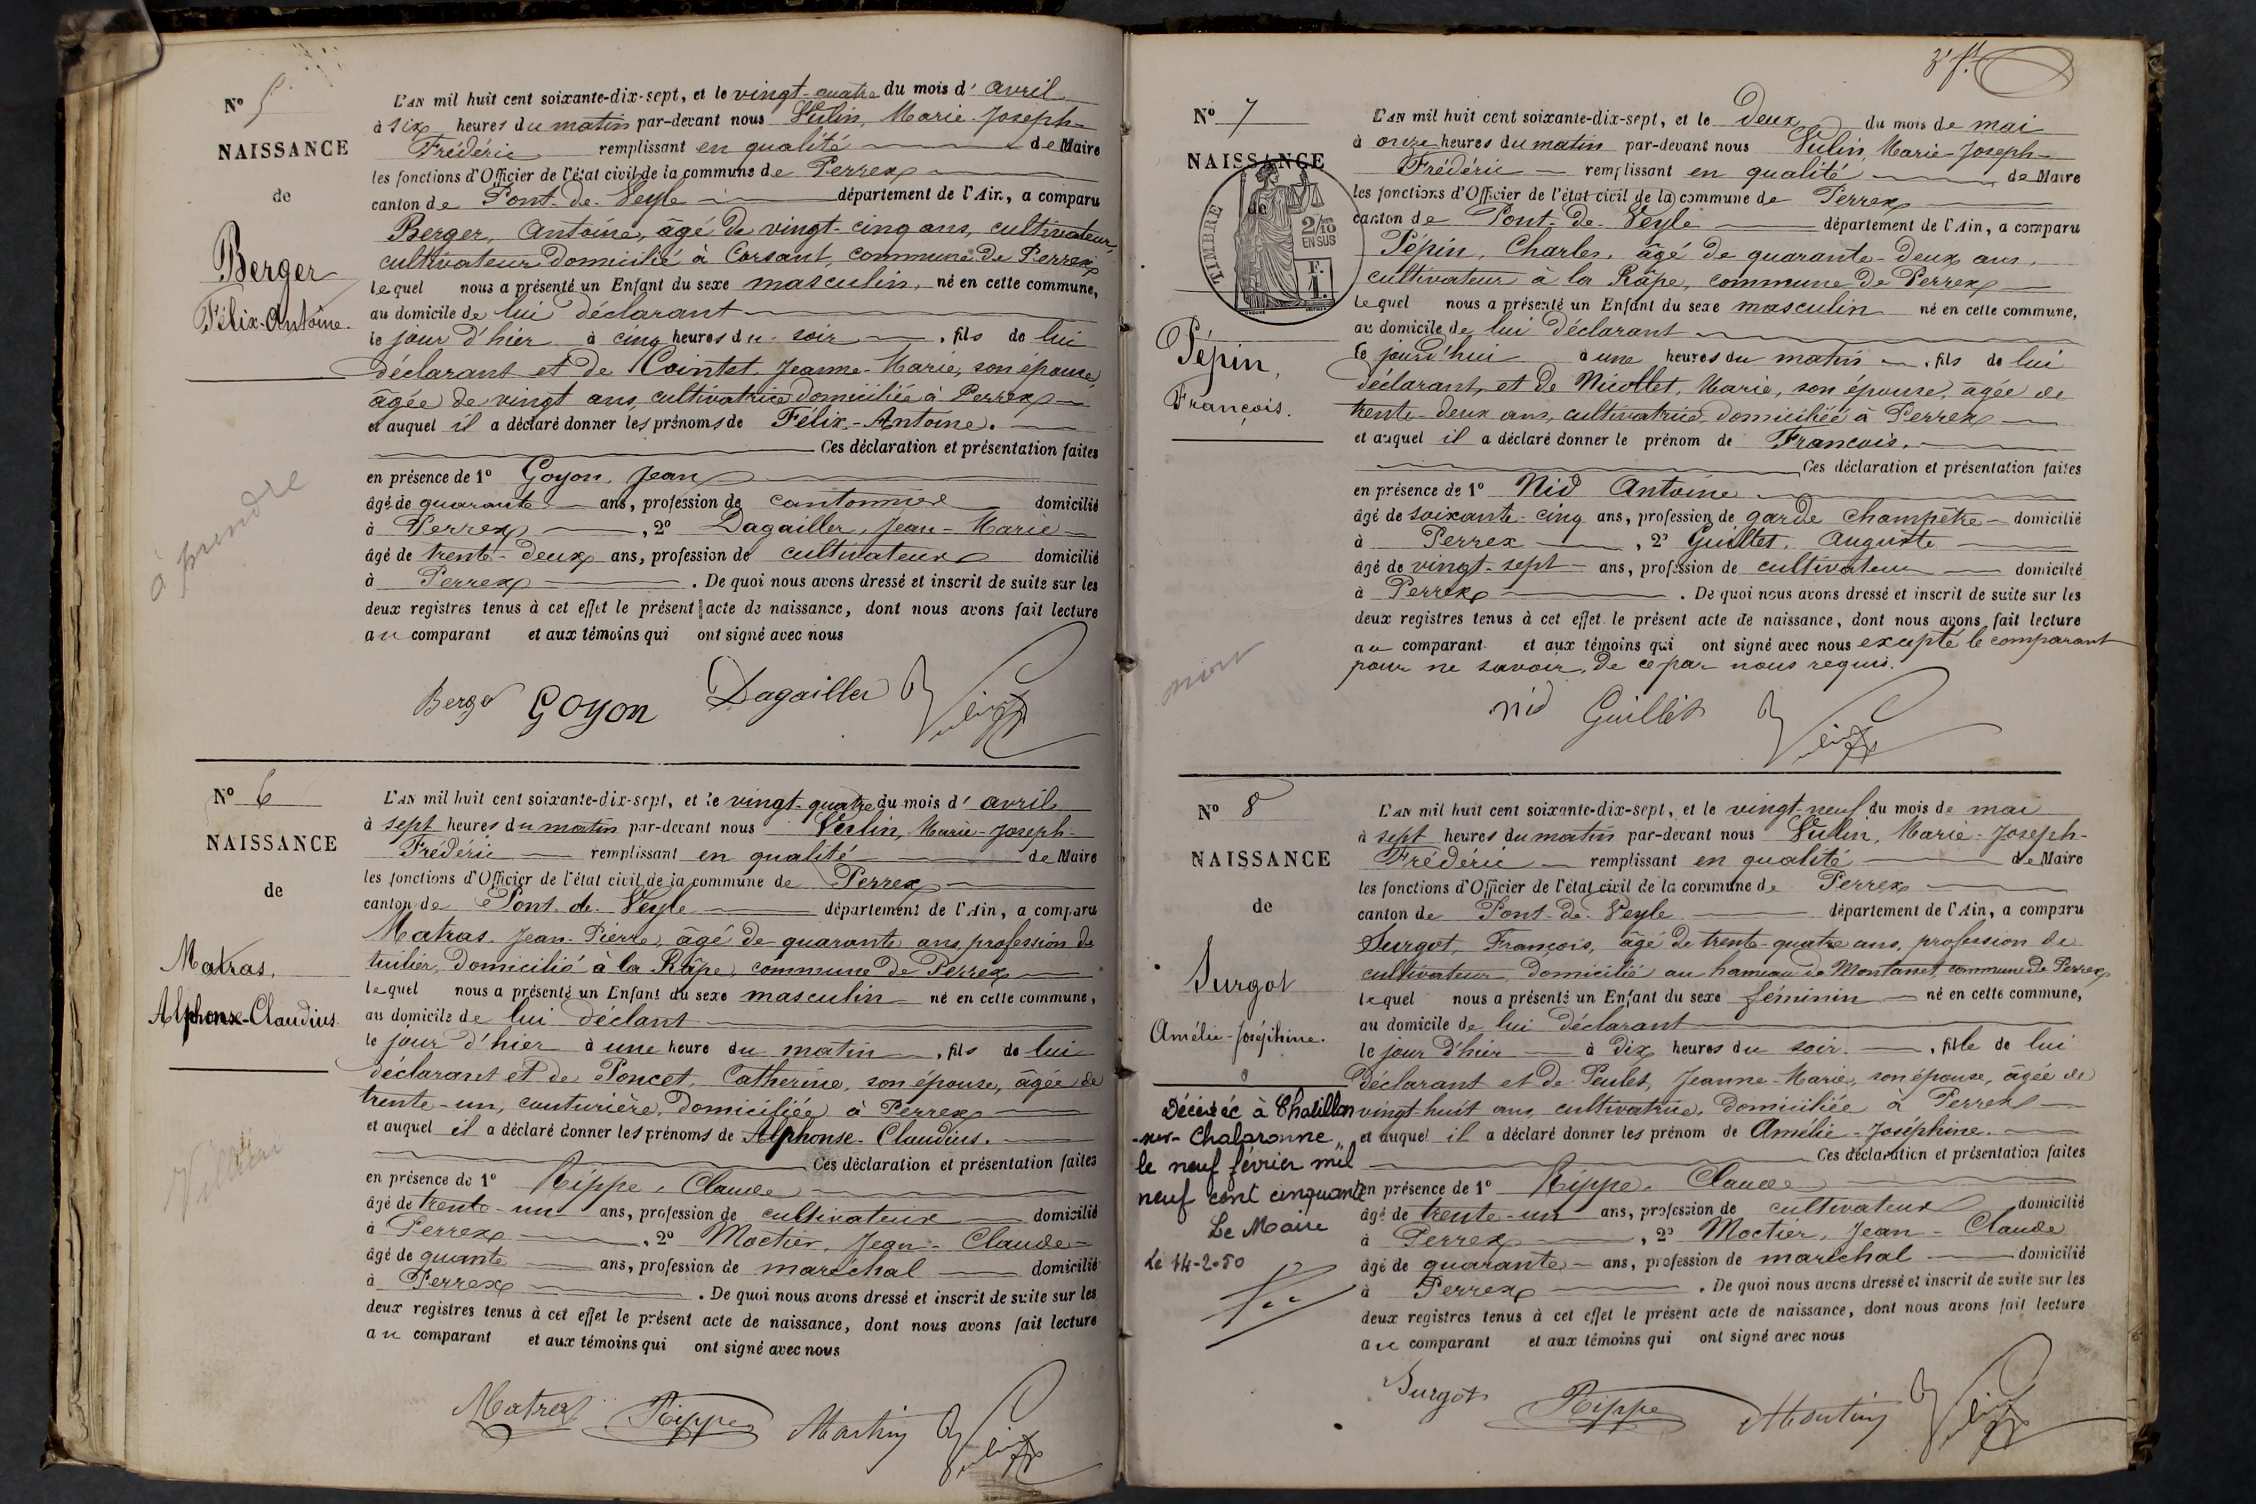 N° 5
NAISSANCE
de
Berger
Félix-Antoine.
à prendre
L'AN mil huit cent soixante-dix-sept, et le vingt-quatre du mois d'avril
à six heures du matin par-devant nous Vulin, Marie-Joseph-
Frédéric remplissant en qualité de Maire
les fonctions d'Officier de l'état civil de la commune de Perrex
canton de Pont-de-Veyle département de l'Ain, a comparu
Berger, Antoine, âgé de vingt-cinq ans, cultivateur,
cultivateur domicilié à Corsant, commune de Perrex
lequel nous a présenté un Enfant du sexe masculin, né en cette commune,
au domicile de lui déclarant
le jour d'hier à cinq heures du soir, fils de lui
déclarant et de Cointet, Jeanne-Marie, son épouse,
âgée de vingt ans, cultivatrice domiciliée à Perrex
et auquel il a déclaré donner les prénoms de Félix-Antoine.
Ces déclaration et présentation faites
en présence de 1° Goyon, Jean
âgé de quarante ans, profession de cantonnier domicilié
à Perrex, 2° Dagailler, Jean-Marie
âgé de trente-deux ans, profession de cultivateur domicilié
à Perrex. De quoi nous avons dressé et inscrit de suite sur les
deux registres tenus à cet effet le présent acte de naissance, dont nous avons fait lecture
au comparant et aux témoins qui ont signé avec nous
Berger Goyon Dagailler Vulin
N° 6
NAISSANCE
de
Matras,
Alphonse-Claudius.
L'AN mil huit cent soixante-dix-sept, et le vingt-quatre du mois d'avril
à sept heures du matin par-devant nous Vulin, Marie-Joseph-
Frédéric remplissant en qualité de Maire
les fonctions d'Officier de l'état civil de la commune de Perrex
canton de Pont-de-Veyle département de l'Ain, a comparu
Matras, Jean-Pierre, âgé de quarante ans, profession de
tuilier, domicilié à la Râpe, commune de Perrex
lequel nous a présenté un Enfant du sexe masculin né en cette commune,
au domicile de lui déclant
le jour d'hier à une heure du matin, fils de lui
déclarant et de Poncet, Catherine, son épouse, âgée de
trente-un, couturière, domiciliée à Perrex
et auquel il a déclaré donner les prénoms de Alphonse-Claudius.
Ces déclaration et présentation faites
en présence de 1° Rippe, Claude
âgé de trente-un ans, profession de cultivateur domicilié
à Perrex, 2° Moctier, Jean-Claude
âgé de quante ans, profession de maréchal domicilié
à Perrex. De quoi nous avons dressé et inscrit de suite sur les
deux registres tenus à cet effet le présent acte de naissance, dont nous avons fait lecture
au comparant et aux témoins qui ont signé avec nous
Matras Rippe Vulin
3e ft
N° 7
NAISSANCE
de
TIMBRE
2/10
EN SUS
F.
1.
Pépin,
François.
mort
L'AN mil huit cent soixante-dix-sept, et le Deux du mois de mai
à onze heures du matin par-devant nous Vulin, Marie-Joseph-
Frédéric remplissant en qualité de Maire
les fonctions d'Officier de l'état civil de la commune de Perrex
canton de Pont-de-Veyle département de l'Ain, a comparu
Pépin, Charles, âgé de quarante-deux ans,
cultivateur à la Râpe, commune de Perrex
lequel nous a présenté un Enfant du sexe masculin né en cette commune,
au domicile de lui déclarant
le jourd'hui à une heures du matin, fils de lui
déclarant, et de Nicollet, Marie, son épouse, âgée de
trente-deux ans, cultivatrice, domiciliée à Perrex
et auquel il a déclaré donner le prénom de François.
Ces déclaration et présentation faites
en présence de 1° Nid Antoine
âgé de soixante-cinq ans, profession de garde champêtre domicilié
à Perrex, 2° Guillet, Auguste
âgé de vingt-sept ans, profession de cultivateur domicilié
à Perrex. De quoi nous avons dressé et inscrit de suite sur les
deux registres tenus à cet effet le présent acte de naissance, dont nous avons fait lecture
au comparant et aux témoins qui ont signé avec nous excepté le comparant
pour ne savoir, de ce par nous requis.
Nid Guillet Vulin
N° 8
NAISSANCE
de
Surgot
Amélie-Joséphine.
Décédée à Chatillon
-sur-Chalaronne
le neuf février mil
neuf cent cinquante
Le Maire
Le 14-2-50
L'AN mil huit cent soixante-dix-sept, et le vingt-neuf du mois de mai
à sept heures du matin par-devant nous Vulin, Marie-Joseph-
Frédéric remplissant en qualité de Maire
les fonctions d'Officier de l'état civil de la commune de Perrex
canton de Pont-de-Veyle département de l'Ain, a comparu
Surgot, François, âgé de trente-quatre ans, profession de
cultivateur, domicilié au hameau de Montanet, commune de Perrex
lequel nous a présenté un Enfant du sexe féminin né en cette commune,
au domicile de lui déclarant
le jour d'hier à dix heures du soir, fille de lui
déclarant et de Peulet, Jeanne-Marie, son épouse, âgée de
vingt-huit ans, cultivatrice, domiciliée à Perrex
et auquel il a déclaré donner les prénom de Amélie-Joséphine.
Ces déclaration et présentation faites
en présence de 1° Rippe, Claude
âgé de trente-un ans, profession de cultivateur domicilié
à Perrex, 2° Moctier, Jean-Claude
âgé de quarante ans, profession de maréchal domicilié
à Perrex. De quoi nous avons dressé et inscrit de suite sur les
deux registres tenus à cet effet le présent acte de naissance, dont nous avons fait lecture
au comparant et aux témoins qui ont signé avec nous
Surgot Rippe Vulin